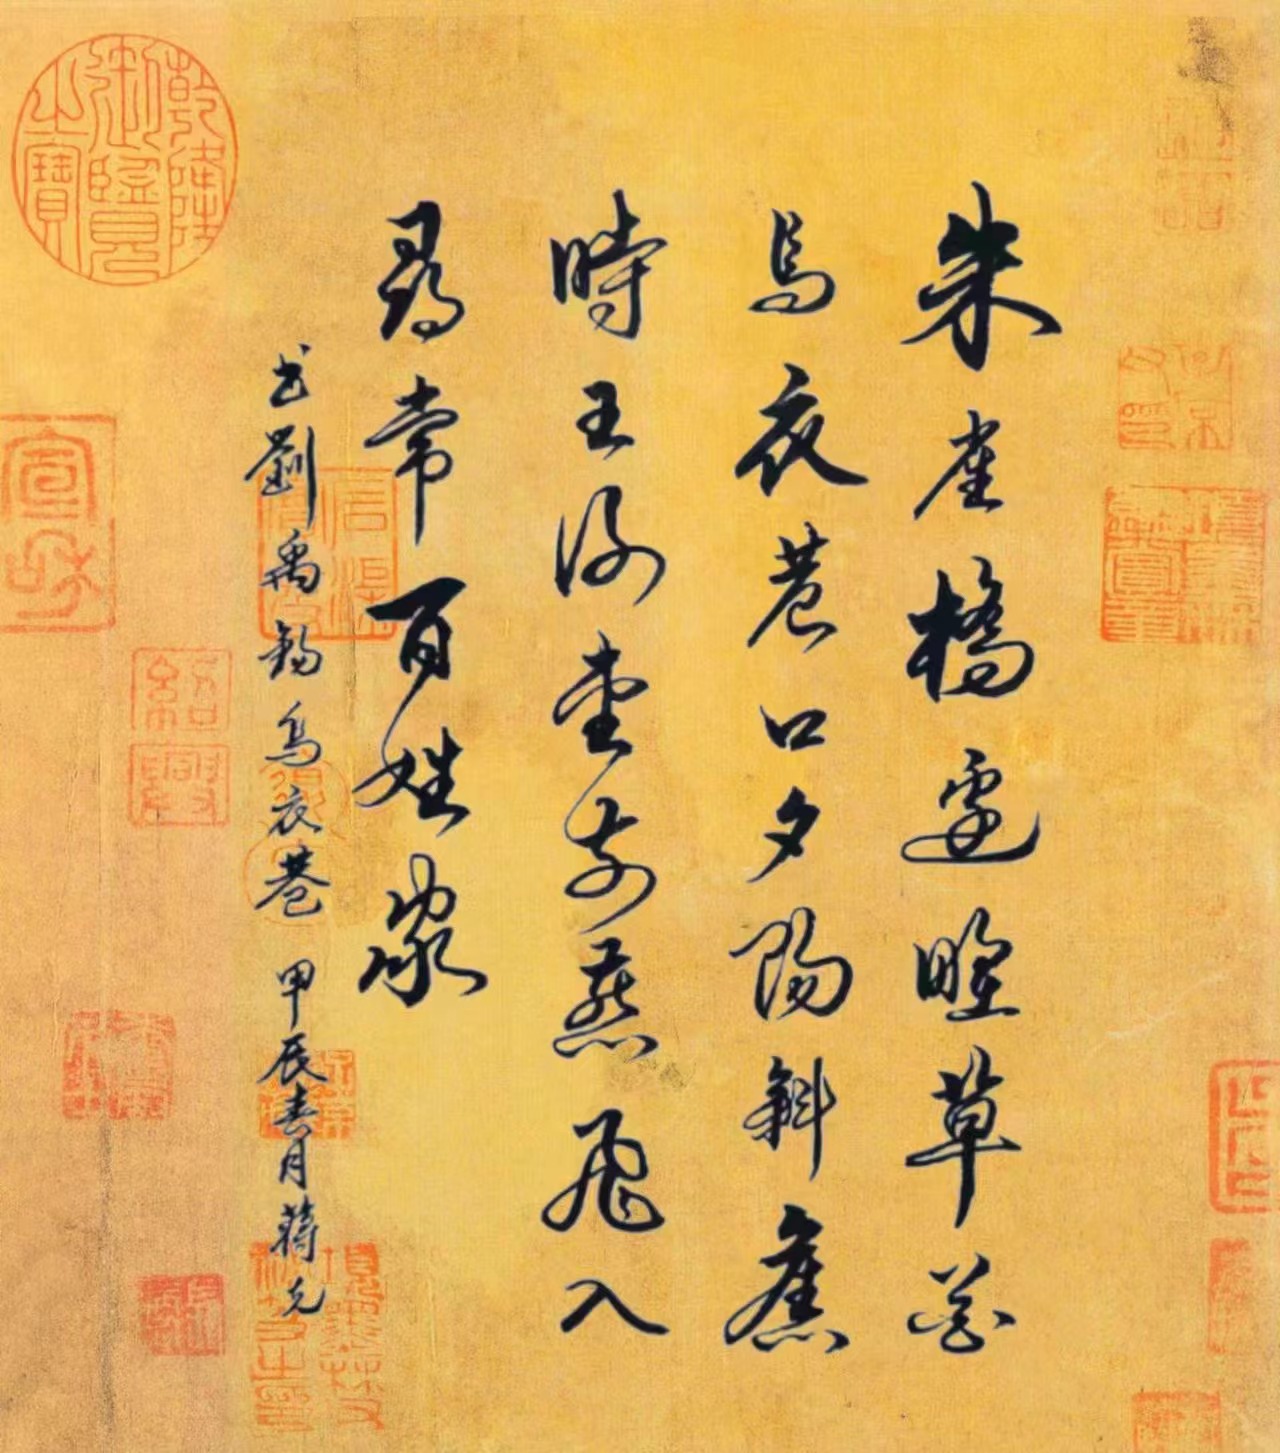 朱雀橋邊野草花
烏衣巷口夕陽斜舊
時王謝堂前燕飛入
尋常百姓家
書劉禹錫烏衣巷 甲辰春月蔣
乾隆御覽之寶
宣和
紹興